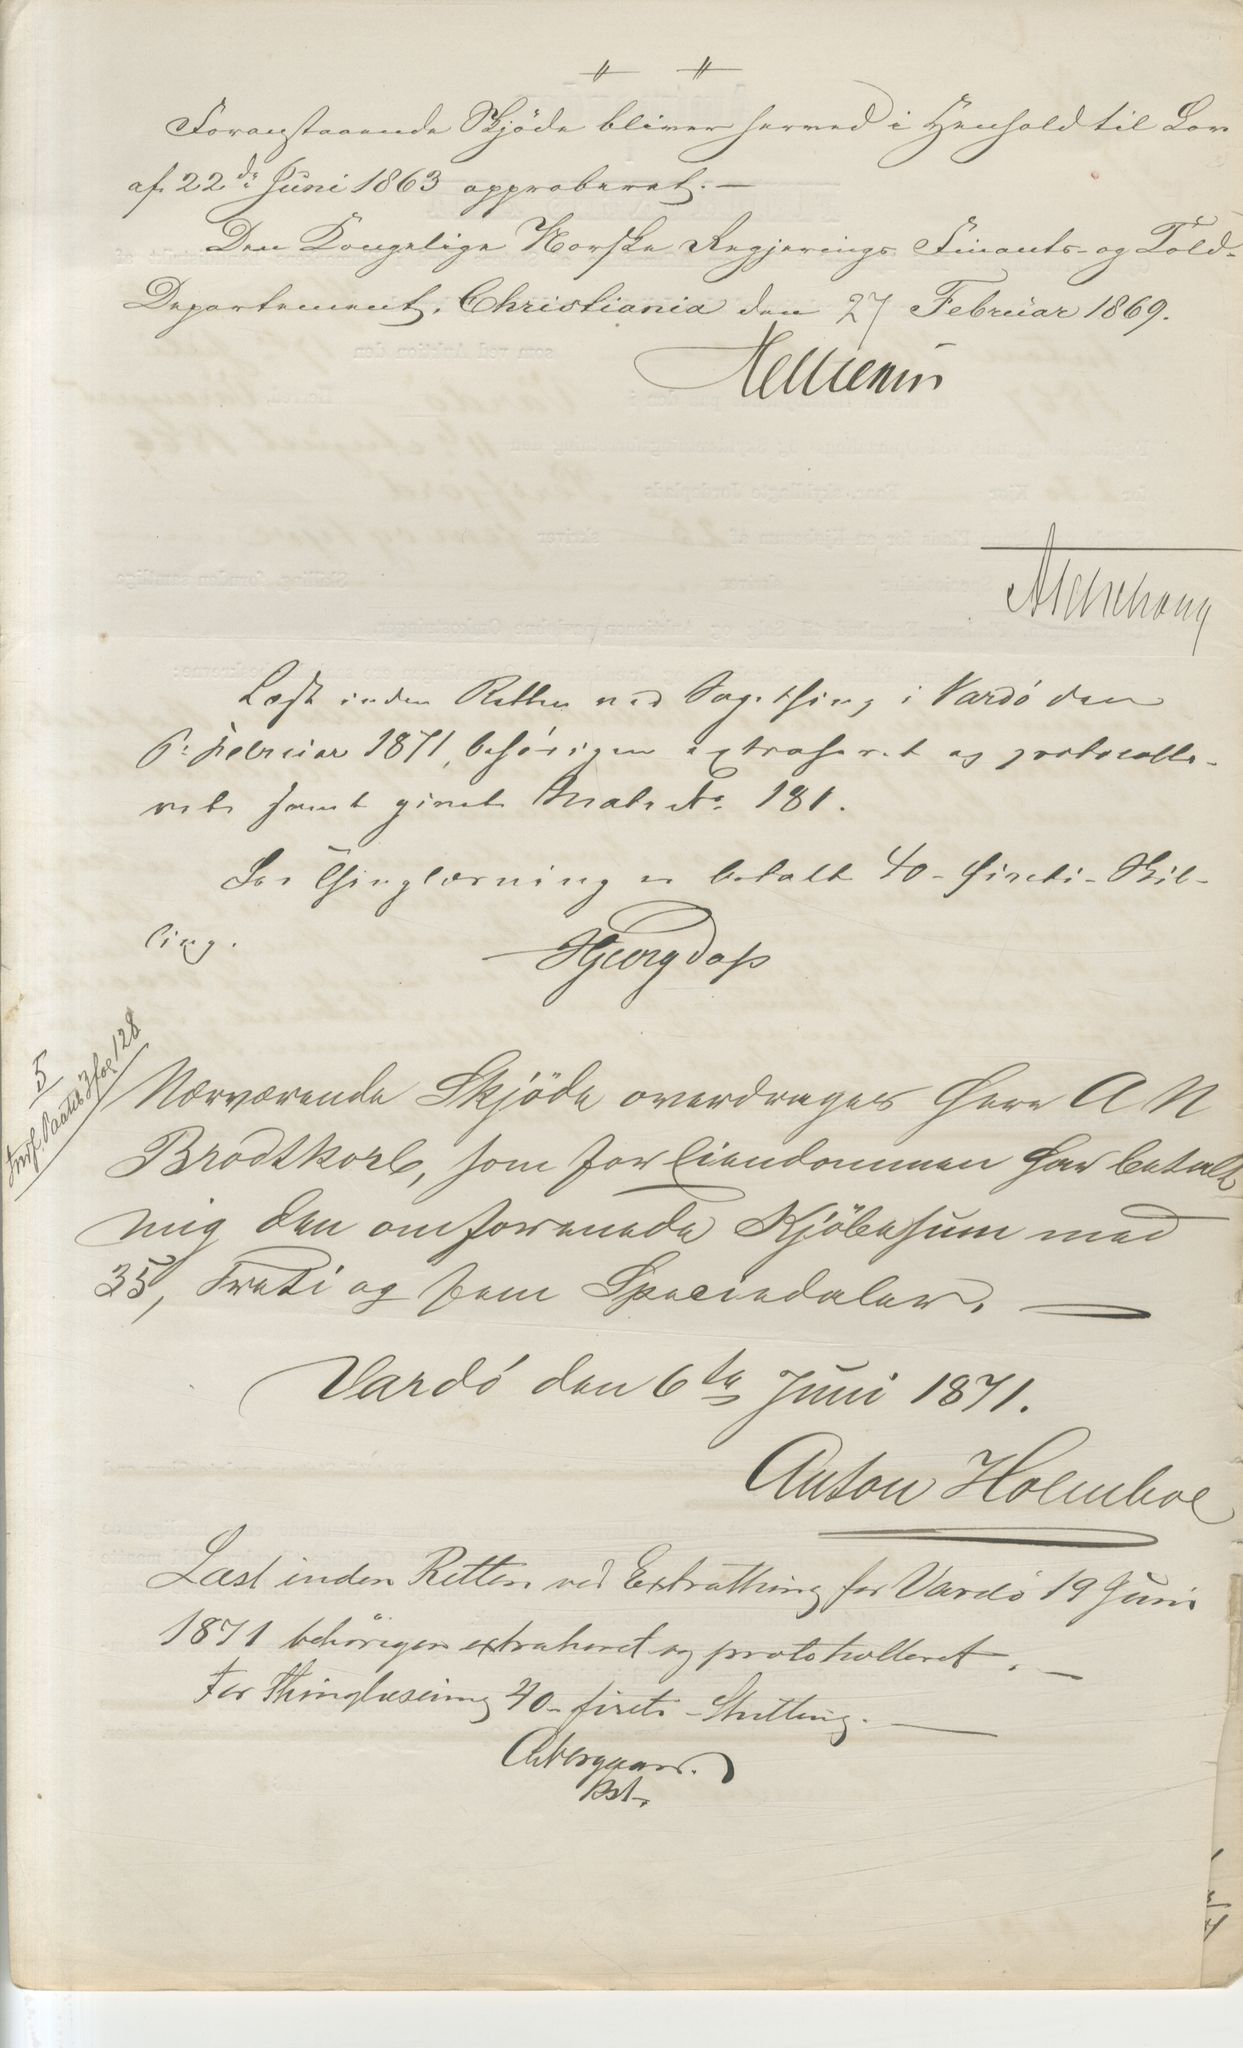 Foranstaaende Skjöde bliver herved i Henhold til Lov
af 22de Juni 1863 approberet. —
Den Kongelige Norske Regjerings Finants- og Told-
Departement, Christiania den 27 Februar 1869.
Læst inden Retten ved Sagething i Vardö den
6: Februar 1871, behörigen extraheret og protocolle-
ret samt givet No. 181.
For Thinglæsning er betalt 40 - fireti - Skil-
ling.
5
128
Nærværende Skjöde overdrages Herr A N
Brodtkorb, som for Eiendommen har betalt
mig den omforenede Kjöbesum med
35, Treti og fem Speciedaler. —
Vardö den 6te Juni 1871.
Anton Holmboe
Læst inden Retten ved Extrathing for Vardö 19 Juni
1871 behörigen extraheret og protokolleret. —
For Thinglæsning 40 - fireti - Skilling. —